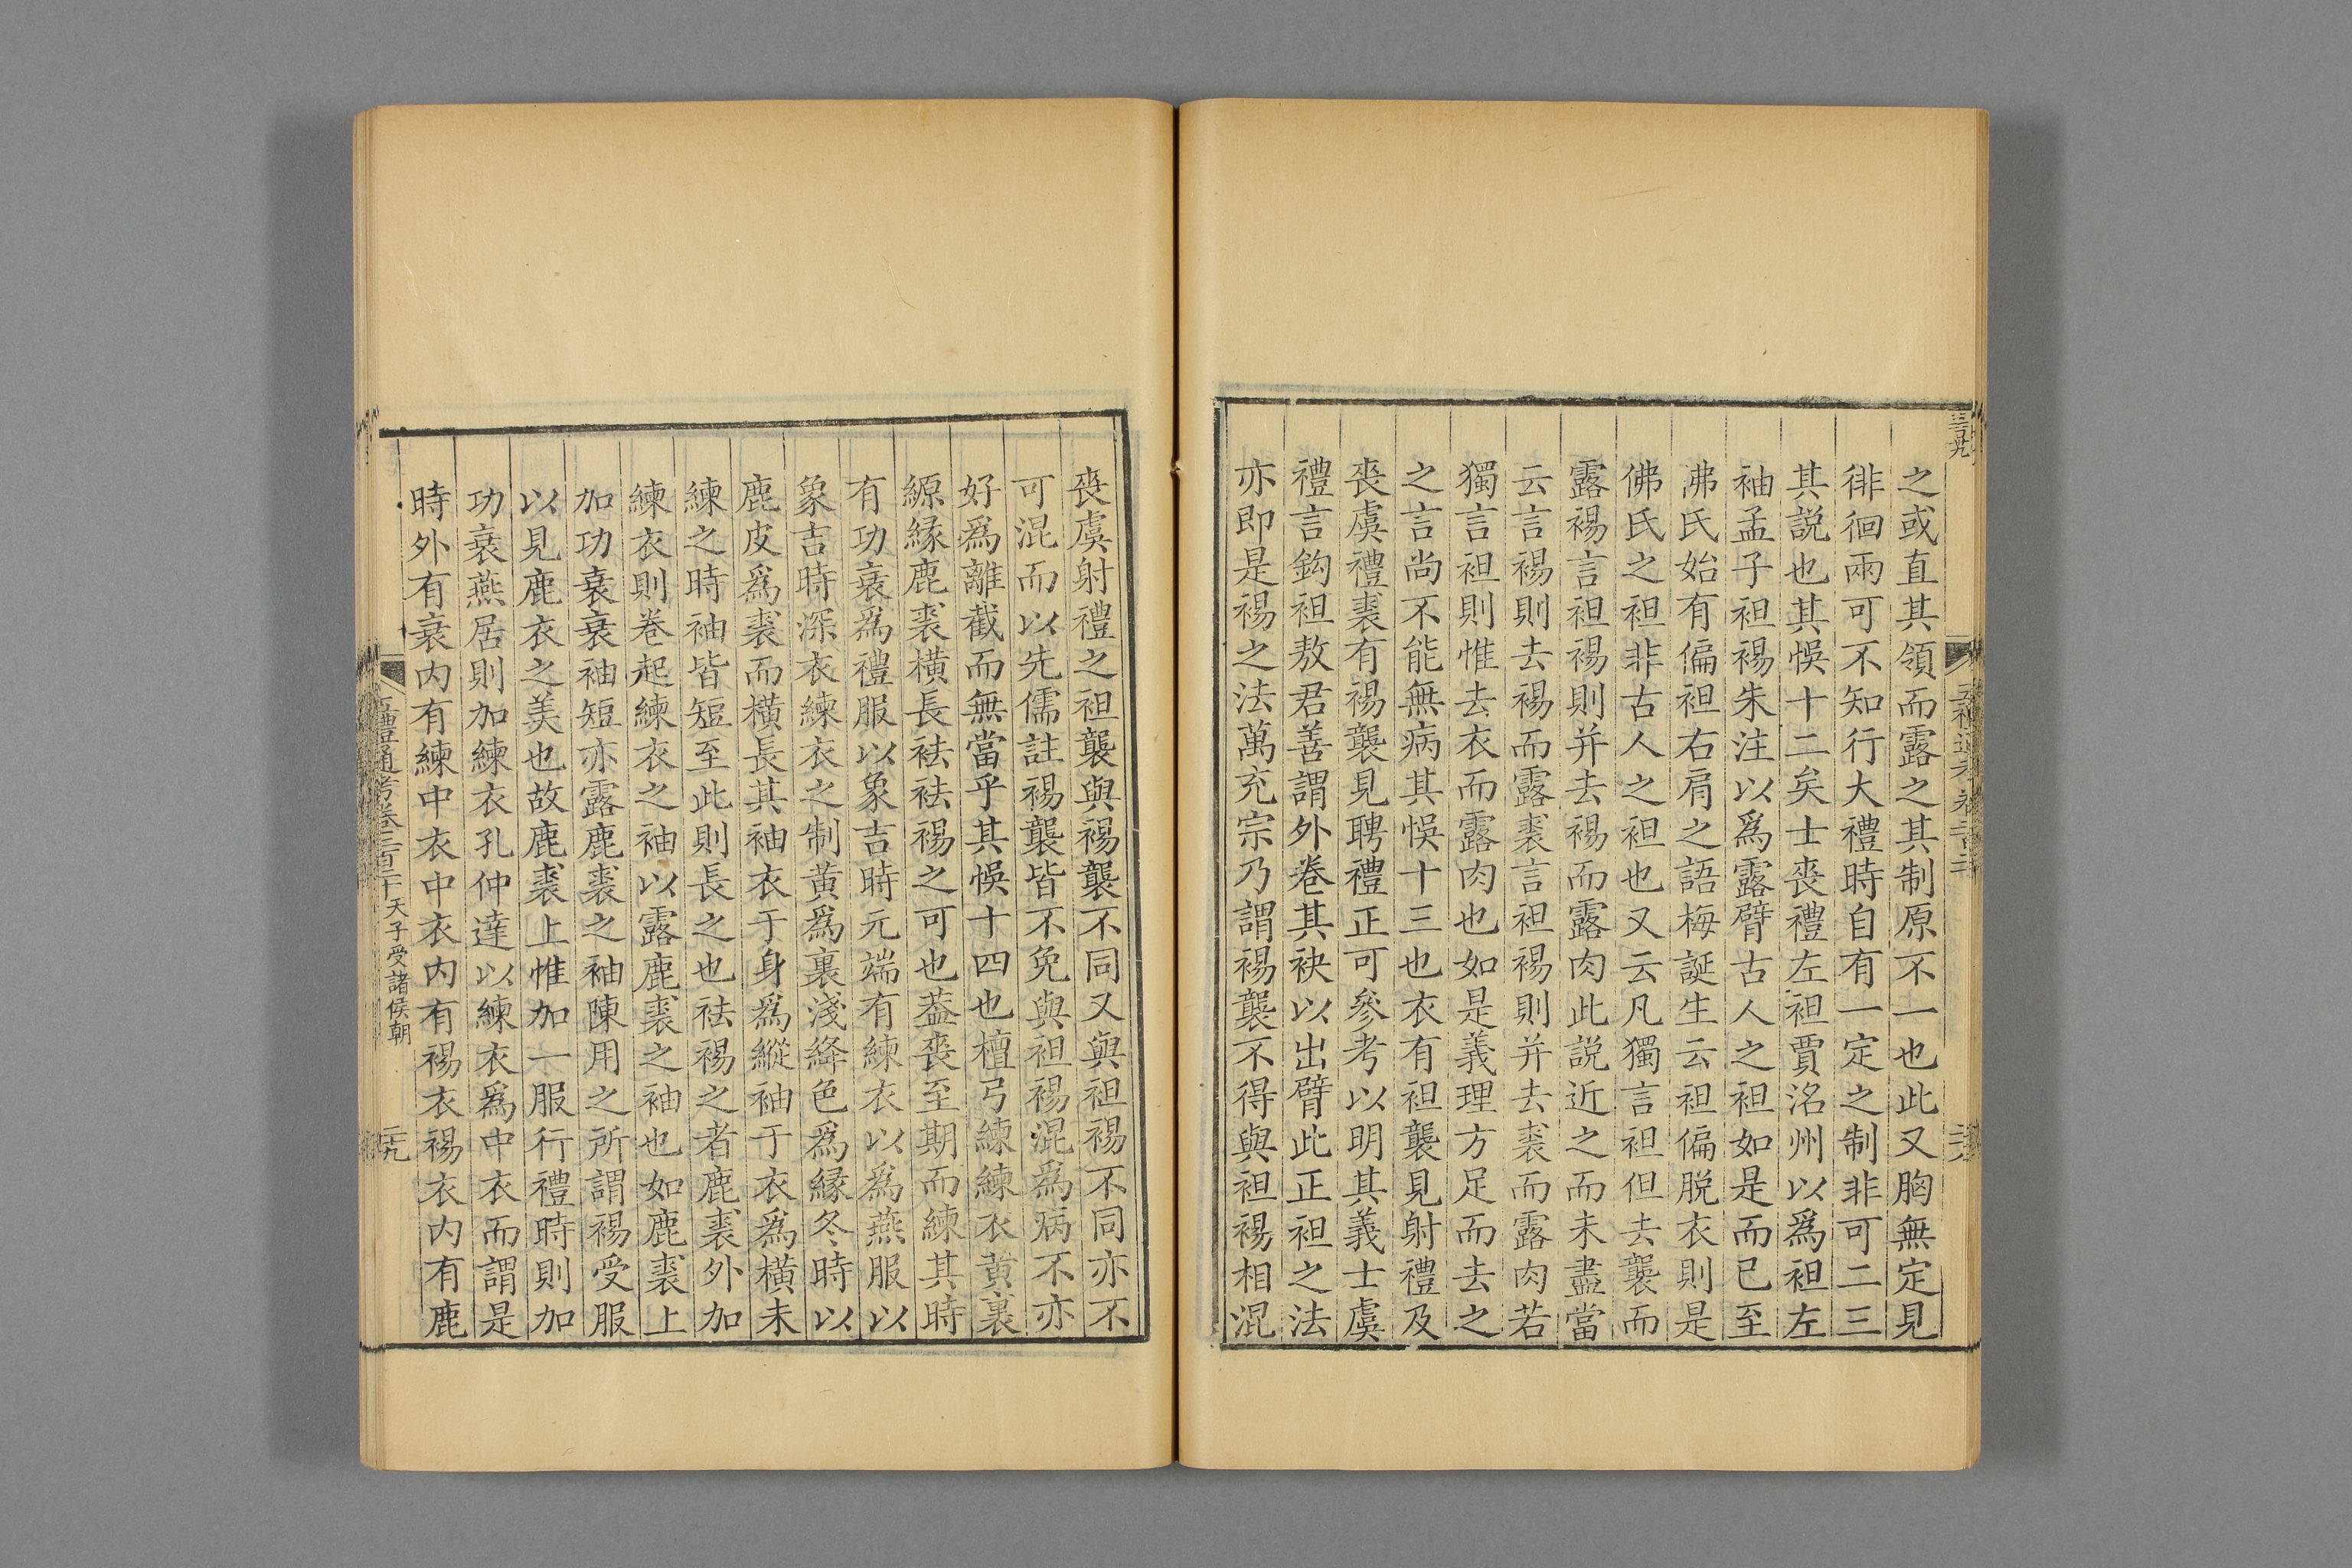 之或直其領而露之其制原不一也此又胸無定見
徘徊兩可不知行大禮時自有一定之制非可二三
其説也其悞十二矣士喪禮左袒賈洺州以爲袒左
袖孟子袒裼朱注以爲露臂古人之袒如是而已至
沸氏始有偏袒右肩之語梅誕生云袒偏脱衣則是
佛氏之袒非古人之袒也又云凡獨言袒但去襲而
露裼言袒裼則并去裼而露肉此説近之而未盡當
云言裼則去裼而露裘言袒裼則并去裘而露肉若
獨言袒則惟去衣而露肉也如是義理方足而去之
之言尚不能無病其悞十三也衣有袒襲見射禮及
喪虞禮裘有裼襲見聘禮正可參考以明其義士虞
禮言鈎袒敖君善謂外卷其袂以出臂此正袒之法
亦即是裼之法萬充宗乃謂裼襲不得與袒裼相混
喪虞射禮之袒襲與裼襲不同又與袒裼不同亦不
可混而以先儒註裼襲皆不免與袒裼混爲病不亦
好爲離截而無當乎其悞十四也檀弓練練衣黄裏
縓緣鹿裘橫長袪袪裼之可也葢喪至期而練其時
有功衰爲禮服以象吉時元端有練衣以爲燕服以
象吉時深衣練衣之制黄爲裏淺絳色爲緣冬時以
鹿皮爲裘而橫長其袖衣于身爲縱袖于衣爲橫未
練之時袖皆短至此則長之也袪裼之者鹿裘外加
練衣則卷起練衣之袖以露鹿裘之袖也如鹿裘上
加功衰衰袖短亦露鹿裘之袖陳用之所謂裼受服
以見鹿衣之美也故鹿裘上惟加一服行禮時則加
功衰燕居則加練衣孔仲達以練衣爲中衣而謂是
時外有衰内有練中衣中衣内有裼衣裼衣内有鹿
五禮通考卷二百二十天子受諸侯朝
二十九